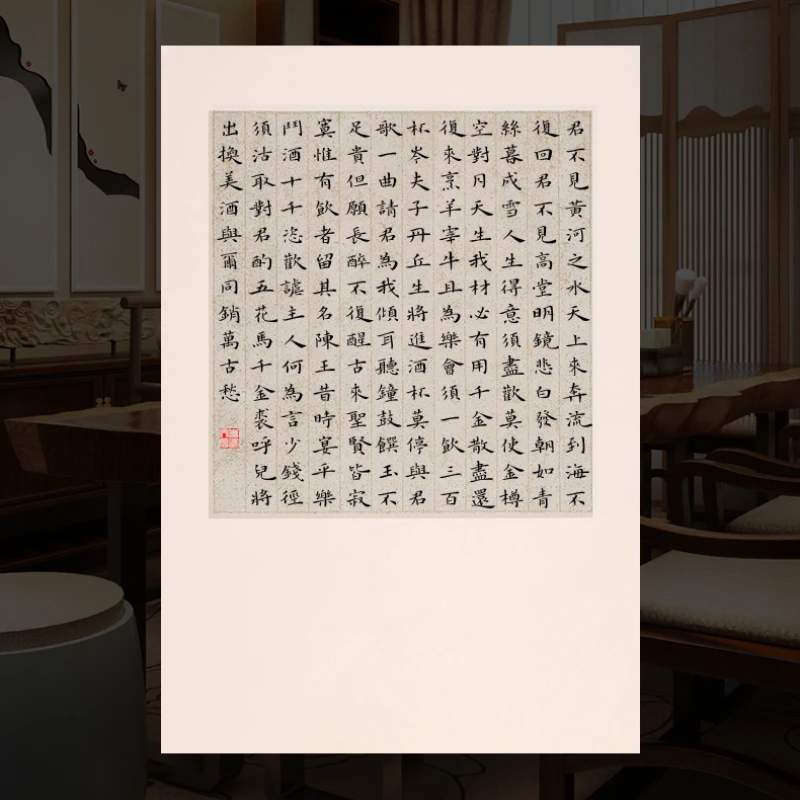 君不見黃河之水天上來奔流到海不
復回君不見高堂明鏡悲白發朝如青
絲暮成雪人生得意須盡歡莫使金樽
空對月天生我材必有用千金散盡還
復來烹羊宰牛且為樂會須一飲三百
杯岑夫子丹丘生將進酒杯莫停與君
歌一曲請君為我傾耳聽鐘鼓饌玉不
足貴但願長醉不復醒古來聖賢皆寂
寞惟有飲者留其名陳王昔時宴平樂
鬥酒十千恣歡謔主人何為言少錢徑
須沽取對君酌五花馬千金裘呼兒將
出換美酒與爾同銷萬古愁